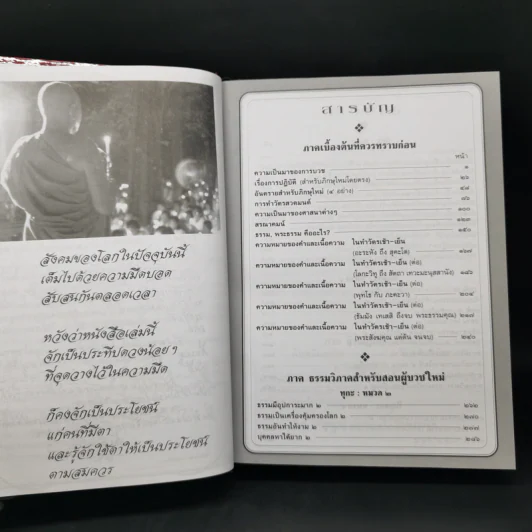 สังคมของโลกในปัจจุบันนี้
เต็มไปด้วยความมืดบอด
สับสนกันตลอดเวลา
หวังว่าหนังสือเล่มนี้
จักเป็นประทีปดวงน้อย ๆ
ที่จุดวางไว้ในความมืด
ก็คงจักเป็นประโยชน์
แก่คนที่มีตา
และรู้จักใช้ตาให้เป็นประโยชน์
ตามสมควร
สารบัญ
ภาคเบื้องต้นที่ควรทราบก่อน
หน้า
ความเป็นมาของการบวช ๑
เรื่องการปฏิบัติ (สำหรับภิกษุใหม่โดยตรง)
อันตรายสำหรับภิกษุใหม่ (๔ อย่าง)
การทำวัตรสวดมนต์
ความเป็นมาของศาสนาต่างๆ
สรณาคมน์
ธรรม, พระธรรม คืออะไร?
ความหมายของคำและเนื้อความ ในทำวัตรเช้า-เย็น
(อะระหัง ถึง สุคะโต)
ความหมายของคำและเนื้อความ ในทำวัตรเช้า-เย็น (ต่อ)
(โลกะวิทู ถึง สัตถา เทวะมะนุสสานัง)
ความหมายของคำและเนื้อความ ในทำวัตรเช้า-เย็น (ต่อ)
(พุทโธ กับ ภะคะวา)
ความหมายของคำและเนื้อความ ในทำวัตรเช้า-เย็น (ต่อ)
(ธัมมัง เทเสสิ ถึงจบ พระธรรมคุณ)
ความหมายของคำและเนื้อความ ในทำวัตรเช้า-เย็น (ต่อ)
(พระสังฆคุณ แต่ต้น จนจบ)
ภาค ธรรมวิภาคสำหรับสอนผู้บวชใหม่
ทุกะ : หมวด ๒
ธรรมมีอุปการะมาก ๒
ธรรมเป็นเครื่องคุ้มครองโลก ๒
ธรรมอันทำให้งาม ๒
บุคคลหาได้ยาก ๒